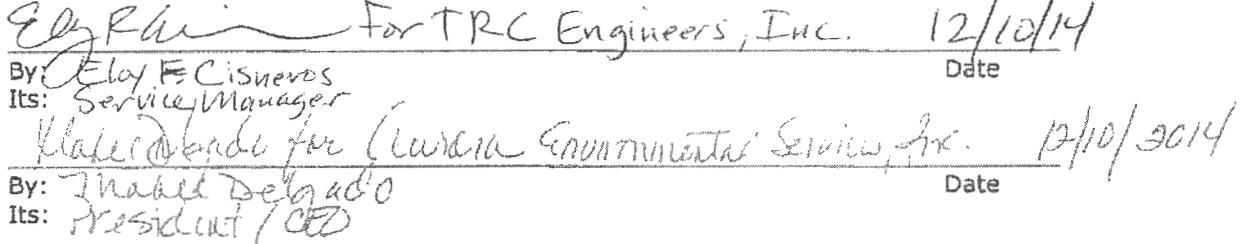 For TRC Engineers, Inc. 12/10/14
By: Eloy F Cisneros Date
Its: Service Manager
for Environmental Services, Inc. 12/10/2014
By: Delgado Date
Its: President / CEO